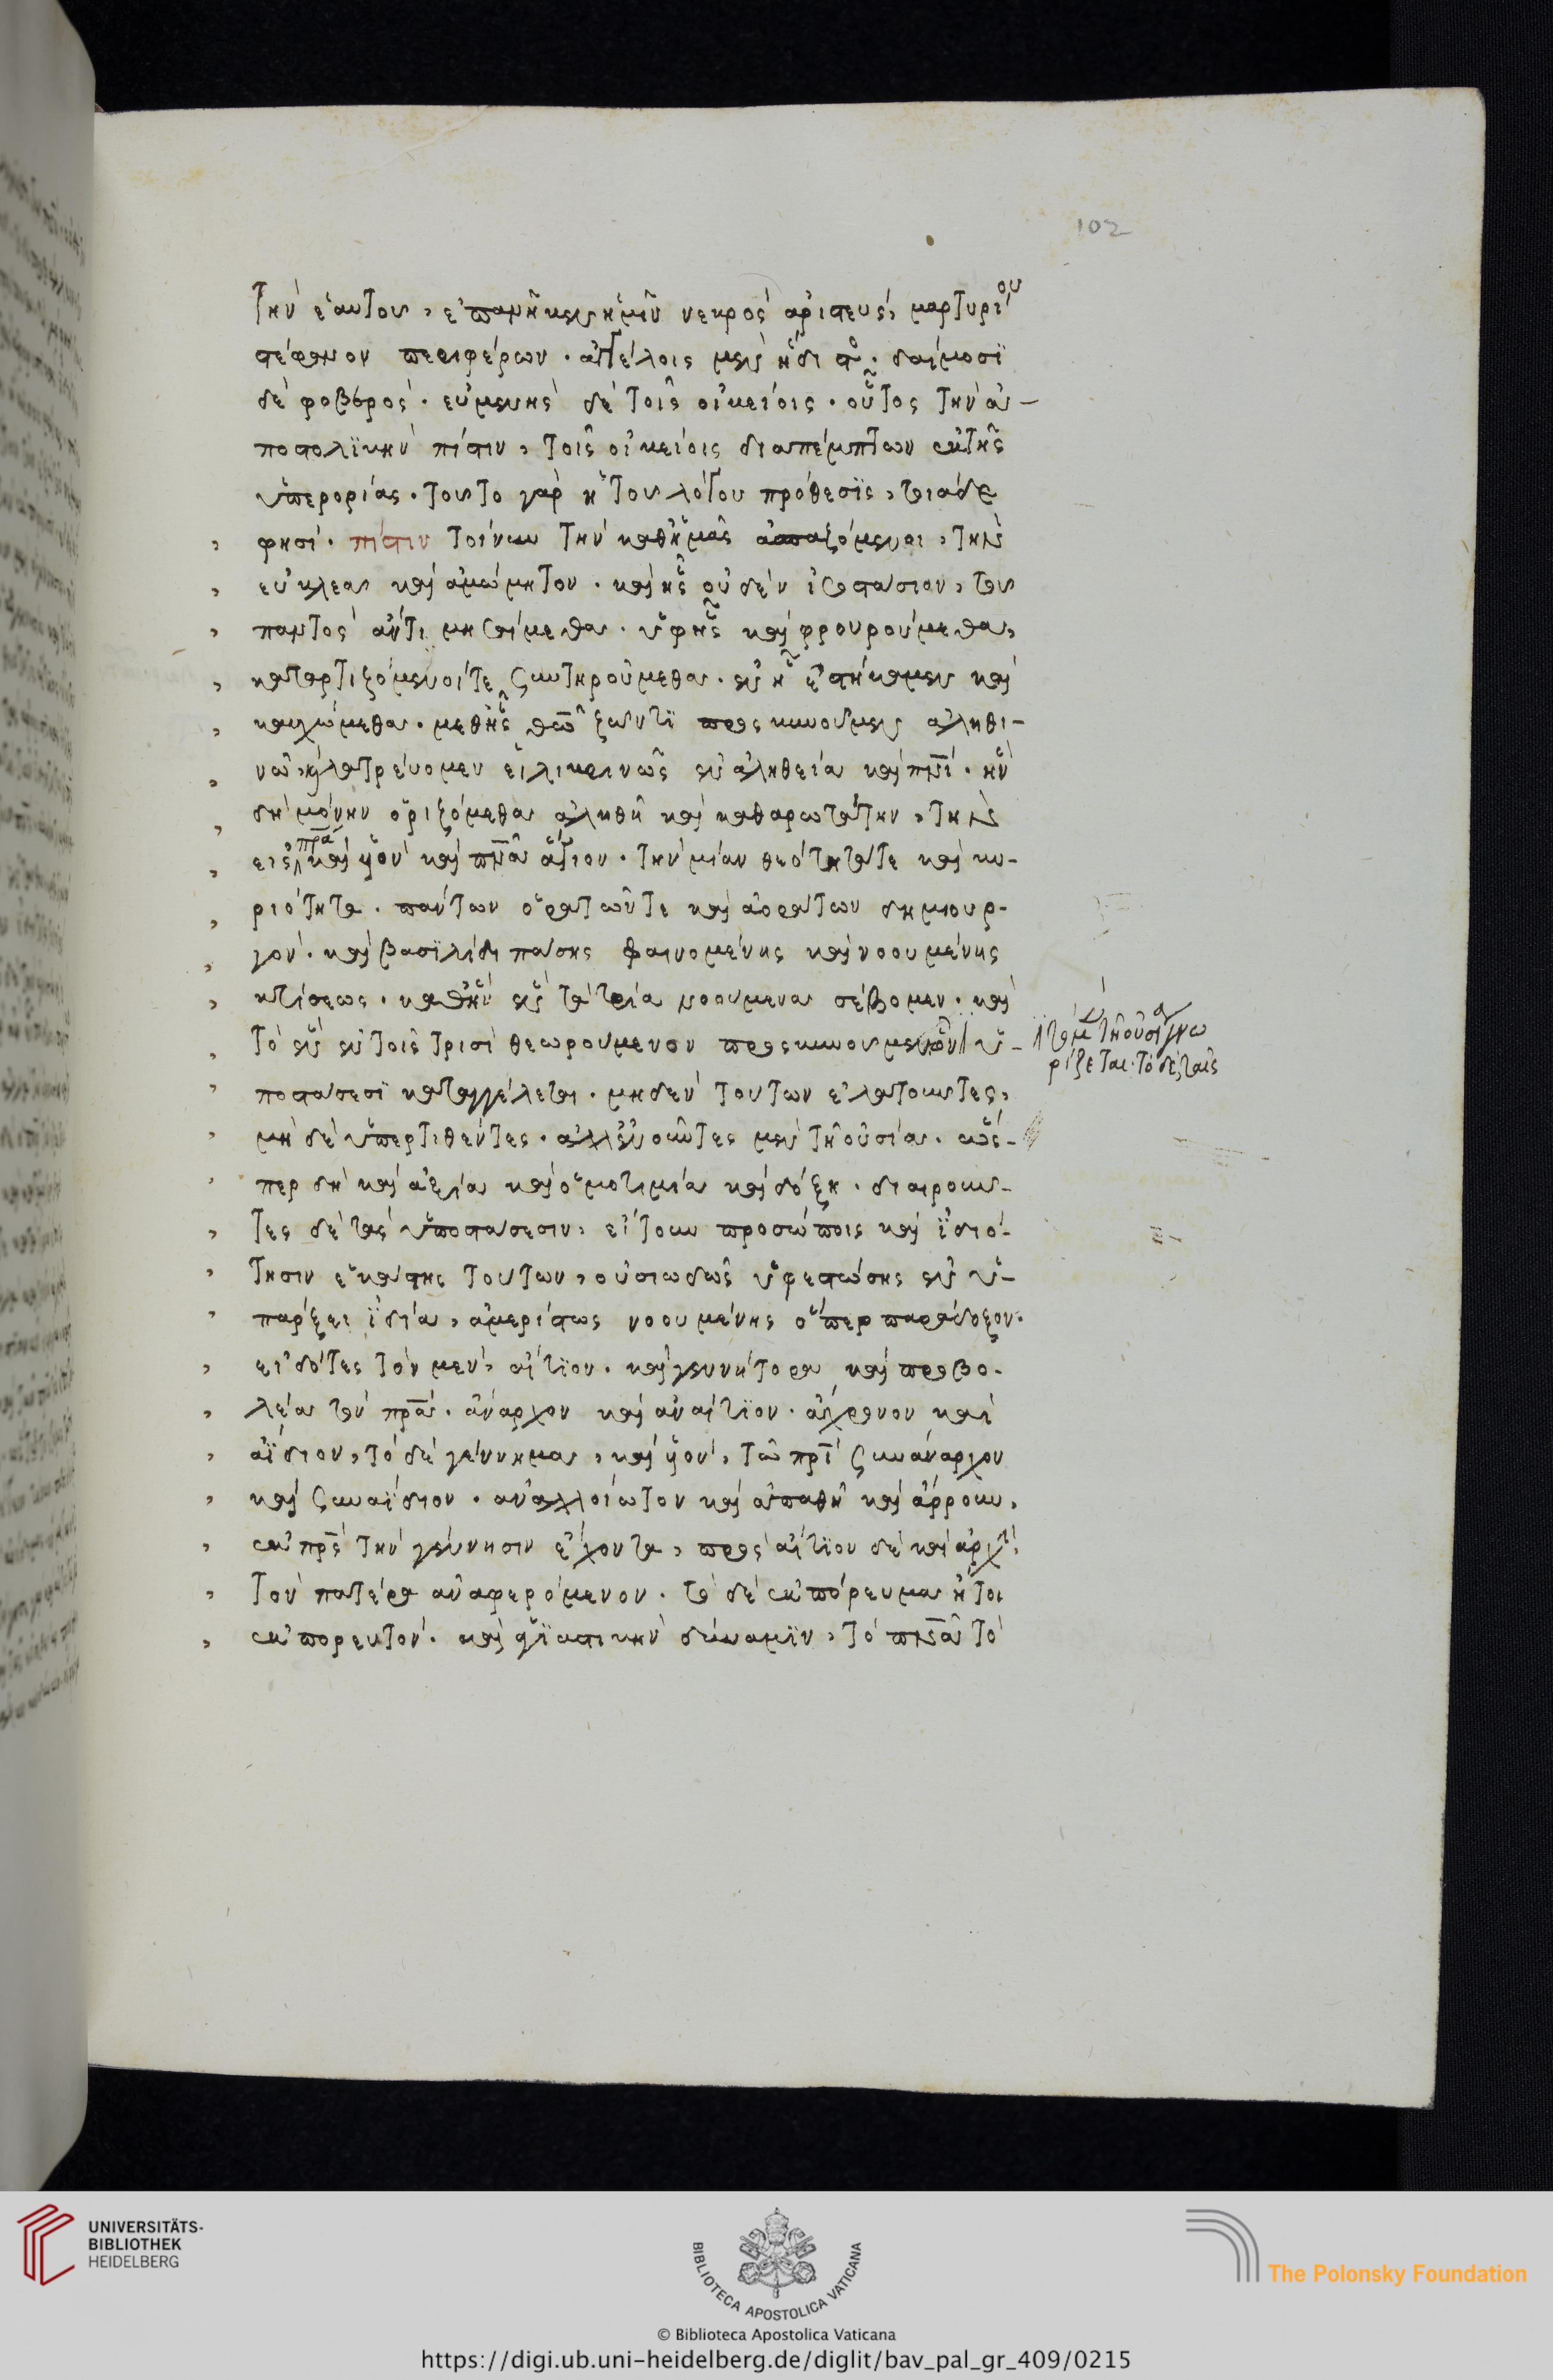 102
τὴν ἑαυτοῦ, ἐπανῆκεν ἡμῖν νεκρὸς ἀριστεὺς, μαρτυρίου
στέφανον περιφέρων. ἀγγέλοις μὲν ἥδιστος. δαίμοσϊ
δὲ φοβερὸς. εὐμενὴς δὲ τοῖς οἰκείοις. οὗτος τὴν ἀ-
ποστολϊκὴν πίστιν, τοῖς οἰκείοις διαπέμπτων ἐκ τῆς
ὑπερορίας. τοῦτο γὰρ ἡ τοῦ λόγου πρόθεσϊς, τοιάδε
φησί. πίστιν τοίνυν τὴν καθ' ἡμᾶς ἀσπαζόμενοι, τὴν
εὐκλεᾶ καὶ ἀμώμητον. καὶ ἧς οὐδὲν ἰσοστάσιον, τοῦ
παντὸς ἀντιμησαίμεθα. ὑφ' ἧς καὶ φρουρούμεθα,
καταρτιζόμενοί τε συντηρούμεθα. ἐν ᾗ ἑστήκαμεν καὶ
καυχώμεθα. μεθ' ἧς θεῷ ζῶντϊ προσκυνοῦμεν ἀληθι-
νῷ, καὶ λατρεύομεν εἰλικρινῶς ἐν ἀληθεία καὶ πνι. ἣν
δὴ μόνην ὁριζόμεθα ἀληθῆ καὶ καθαρωτάτην, τὴν
εἰς πρα καὶ υἱὸν καὶ πνα ἅγιον. τὴν μίαν θεότητά τε καὶ κυ-
ριότητα. πάντων ὁρατῶν τε καὶ ἀοράτων δημιουρ-
γὸν. καὶ βασϊλίδα πάσης φαινομένης καὶ νοουμένης
κτίσεως. καθ' ἣν ἓν τὰ τρία νοούμενα σέβομεν. καὶ
τὸ ἓν ἐν τοῖς τρισὶ θεωρούμενον προσκυνοῦμεν ὑ-
τῆ οὐσία γνω
ρίζεται. τὸ δὲ ταῖς
ποστάσεσϊ καταγγέλεται. μηδὲν τούτων ἐλαττοῦντες,
μὴ δὲ ὑπερτιθέντες. ἀλλ' ἑνοῦντες μὲν τῆ οὐσία. ὥσ-
περ δὴ καὶ ἀξία καὶ ὁμοτιμία καὶ δόξη. διαιροῦν-
τες δὲ ταῖς ὑποστάσεσιν, εἴτουν προσώποις καὶ ϊδιό-
τησιν ἑκάστης τούτων, οὐσιωδῶς ὑφεστώσης ἐν ὑ-
πάρξει ϊδία, ἀμερίστως νοουμένης ὅπερ παράδοξον.
εἰδότες τὸν μὲν, αἴτϊον. καὶ γεννήτορα καὶ προβο-
λέα τὸν πρα. ἄναρχον καὶ ἀναίτϊον. ἄχρονον καὶ
ἀΐδιον, τὸ δὲ γέννημα, καὶ υἱὸν, τῷ πρι συνάναρχον
καὶ συναΐδιον. ἀναλλοίωτον καὶ ἀπαθῆ καὶ ἄρρουν,
ἐκ πρς τὴν γέννησιν ἔχοντα, πρὸς αἴτϊον δὲ καὶ ἀρχὴν
τὸν πατέρα ἀναφερόμενον. τὸ δὲ ἐκπόρευμα ἤτοι
ἐκπορευτὸν. καὶ ἁγϊαστικὴν δύναμϊν, τὸ πνα τὸ
UNIVERSITÄTS-
BIBLIOTHEK
HEIDELBERG
BIBLIOTECA APOSTOLICA VATICANA
The Polonsky Foundation
© Biblioteca Apostolica Vaticana
https://digi.ub.uni-heidelberg.de/diglit/bav_pal_gr_409/0215